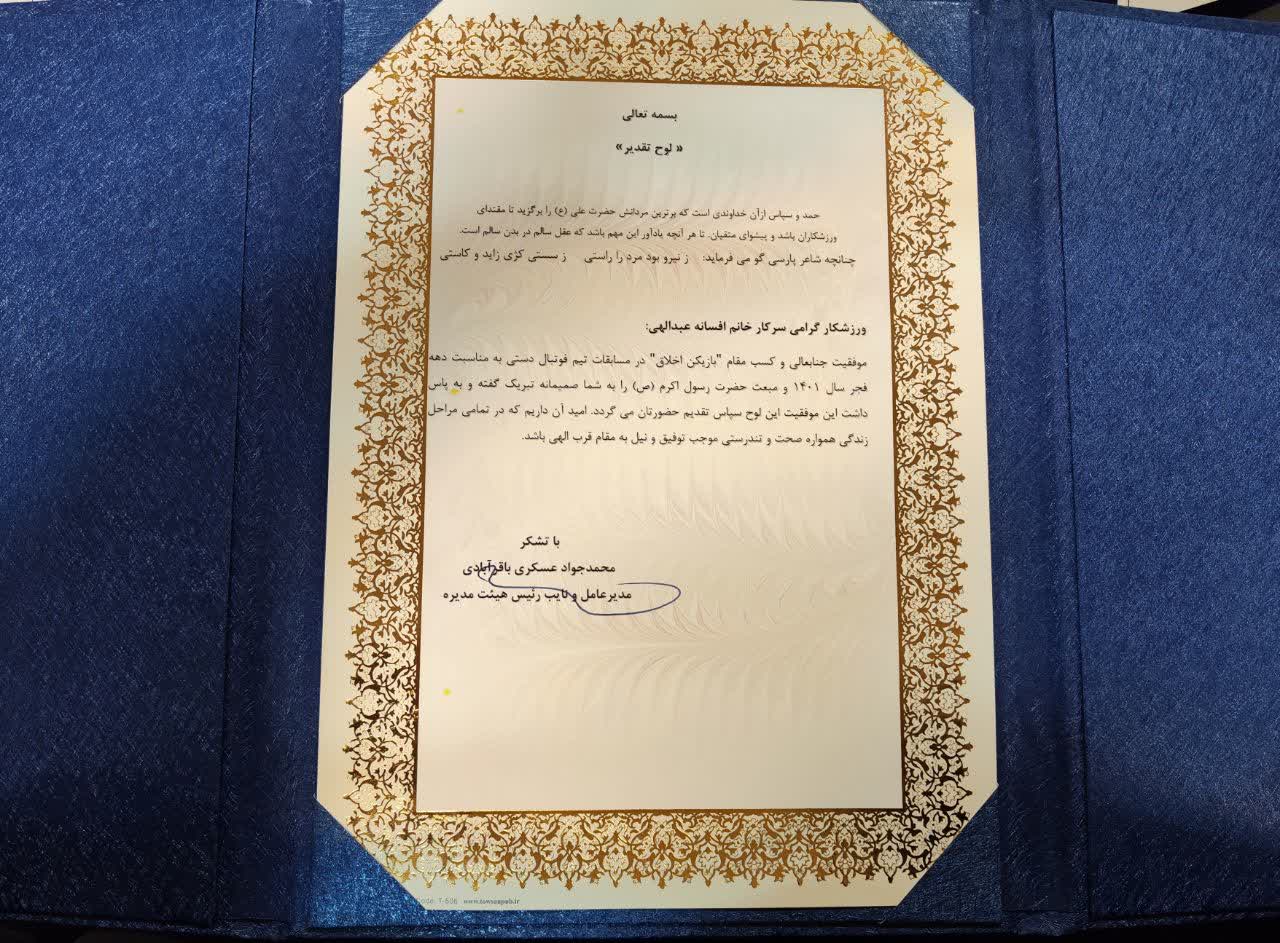 بسمه تعالی
« لوح تقدیر»
حمد و سپاس ازآن خداوندی است که برترین مردانش حضرت علی (ع) را برگزید تا مقتدای
ورزشکاران باشد و پیشوای متقیان. تا هر آنچه یادآور این مهم باشد که عقل سالم در بدن سالم است.
چنانچه شاعر پارسی گو می فرماید: ز نیرو بود مرد را راستی ز سستی کژی زاید و کاستی
ورزشکار گرامی سرکار خانم افسانه عبدالهی:
موفقیت جنابعالی و کسب مقام "بازیکن اخلاق" در مسابقات تیم فوتبال دستی به مناسبت دهه
فجر سال ۱۴۰۱ و مبعث حضرت رسول اکرم (ص) را به شما صمیمانه تبریک گفته و به پاس
داشت این موفقیت این لوح سپاس تقدیم حضورتان می گردد. امید آن داریم که در تمامی مراحل
زندگی همواره صحت و تندرستی موجب توفیق و نیل به مقام قرب الهی باشد.
با تشکر
محمدجواد عسکری باقرآبادی
مدیرعامل و نایب رئیس هیئت مدیره
code: T-506 www.tavsanpub.ir